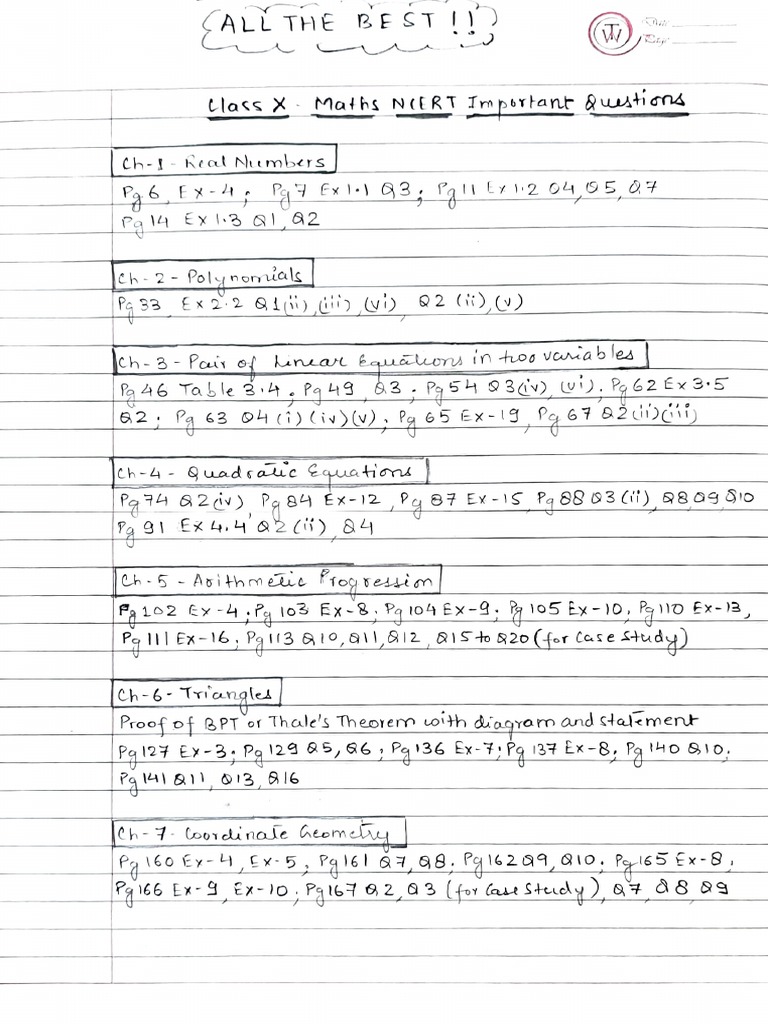 ALL THE BEST!!
Class X - Maths NCERT Important Questions
Ch-1-Real Numbers
Pg 6, Ex-4; Pg 7 Ex 1.1 Q3; Pg 11 Ex 1.2 Q4, Q5, Q7
Pg 14 Ex 1.3 Q1, Q2
Ch-2-Polynomials
Pg 33, Ex 2.2 Q1(ii),(iii),(vi) Q2 (ii),(v)
Ch-3-Pair of Linear Equations in two variables
Pg 46 Table 3.4, Pg 49, Q3; Pg 54 Q3(iv), (vi), Pg 62 Ex 3.5
Q2; Pg 63 Q4(i)(iv)(v), Pg 65 Ex-19, Pg 67 Q2(ii)(iii)
Ch-4-Quadratic Equations
Pg 74 Q2(iv), Pg 84 Ex-12, Pg 87 Ex-15, Pg 88 Q3(ii), Q8 Q9 Q10
Pg 91 Ex 4.4 Q2(ii), Q4
Ch-5-Arithmetic Progression
Pg 102 Ex-4; Pg 103 Ex-8, Pg 104 Ex-9; Pg 105 Ex-10, Pg 110 Ex-13,
Pg 111 Ex-16, Pg 113 Q10, Q11, Q12, Q15 to Q20 (for Case Study)
Ch-6-Triangles
Proof of BPT or Thale's Theorem with diagram and statement
Pg 127 Ex-3; Pg 129 Q5, Q6; Pg 136 Ex-7; Pg 137 Ex-8, Pg 140 Q10,
Pg 141 Q11, Q13, Q16
Ch-7-Coordinate Geometry
Pg 160 Ex-4, Ex-5, Pg 161 Q7, Q8, Pg 162 Q9, Q10; Pg 165 Ex-8,
Pg 166 Ex-9, Ex-10, Pg 167 Q2, Q3 (for Case Study), Q7, Q8 Q9